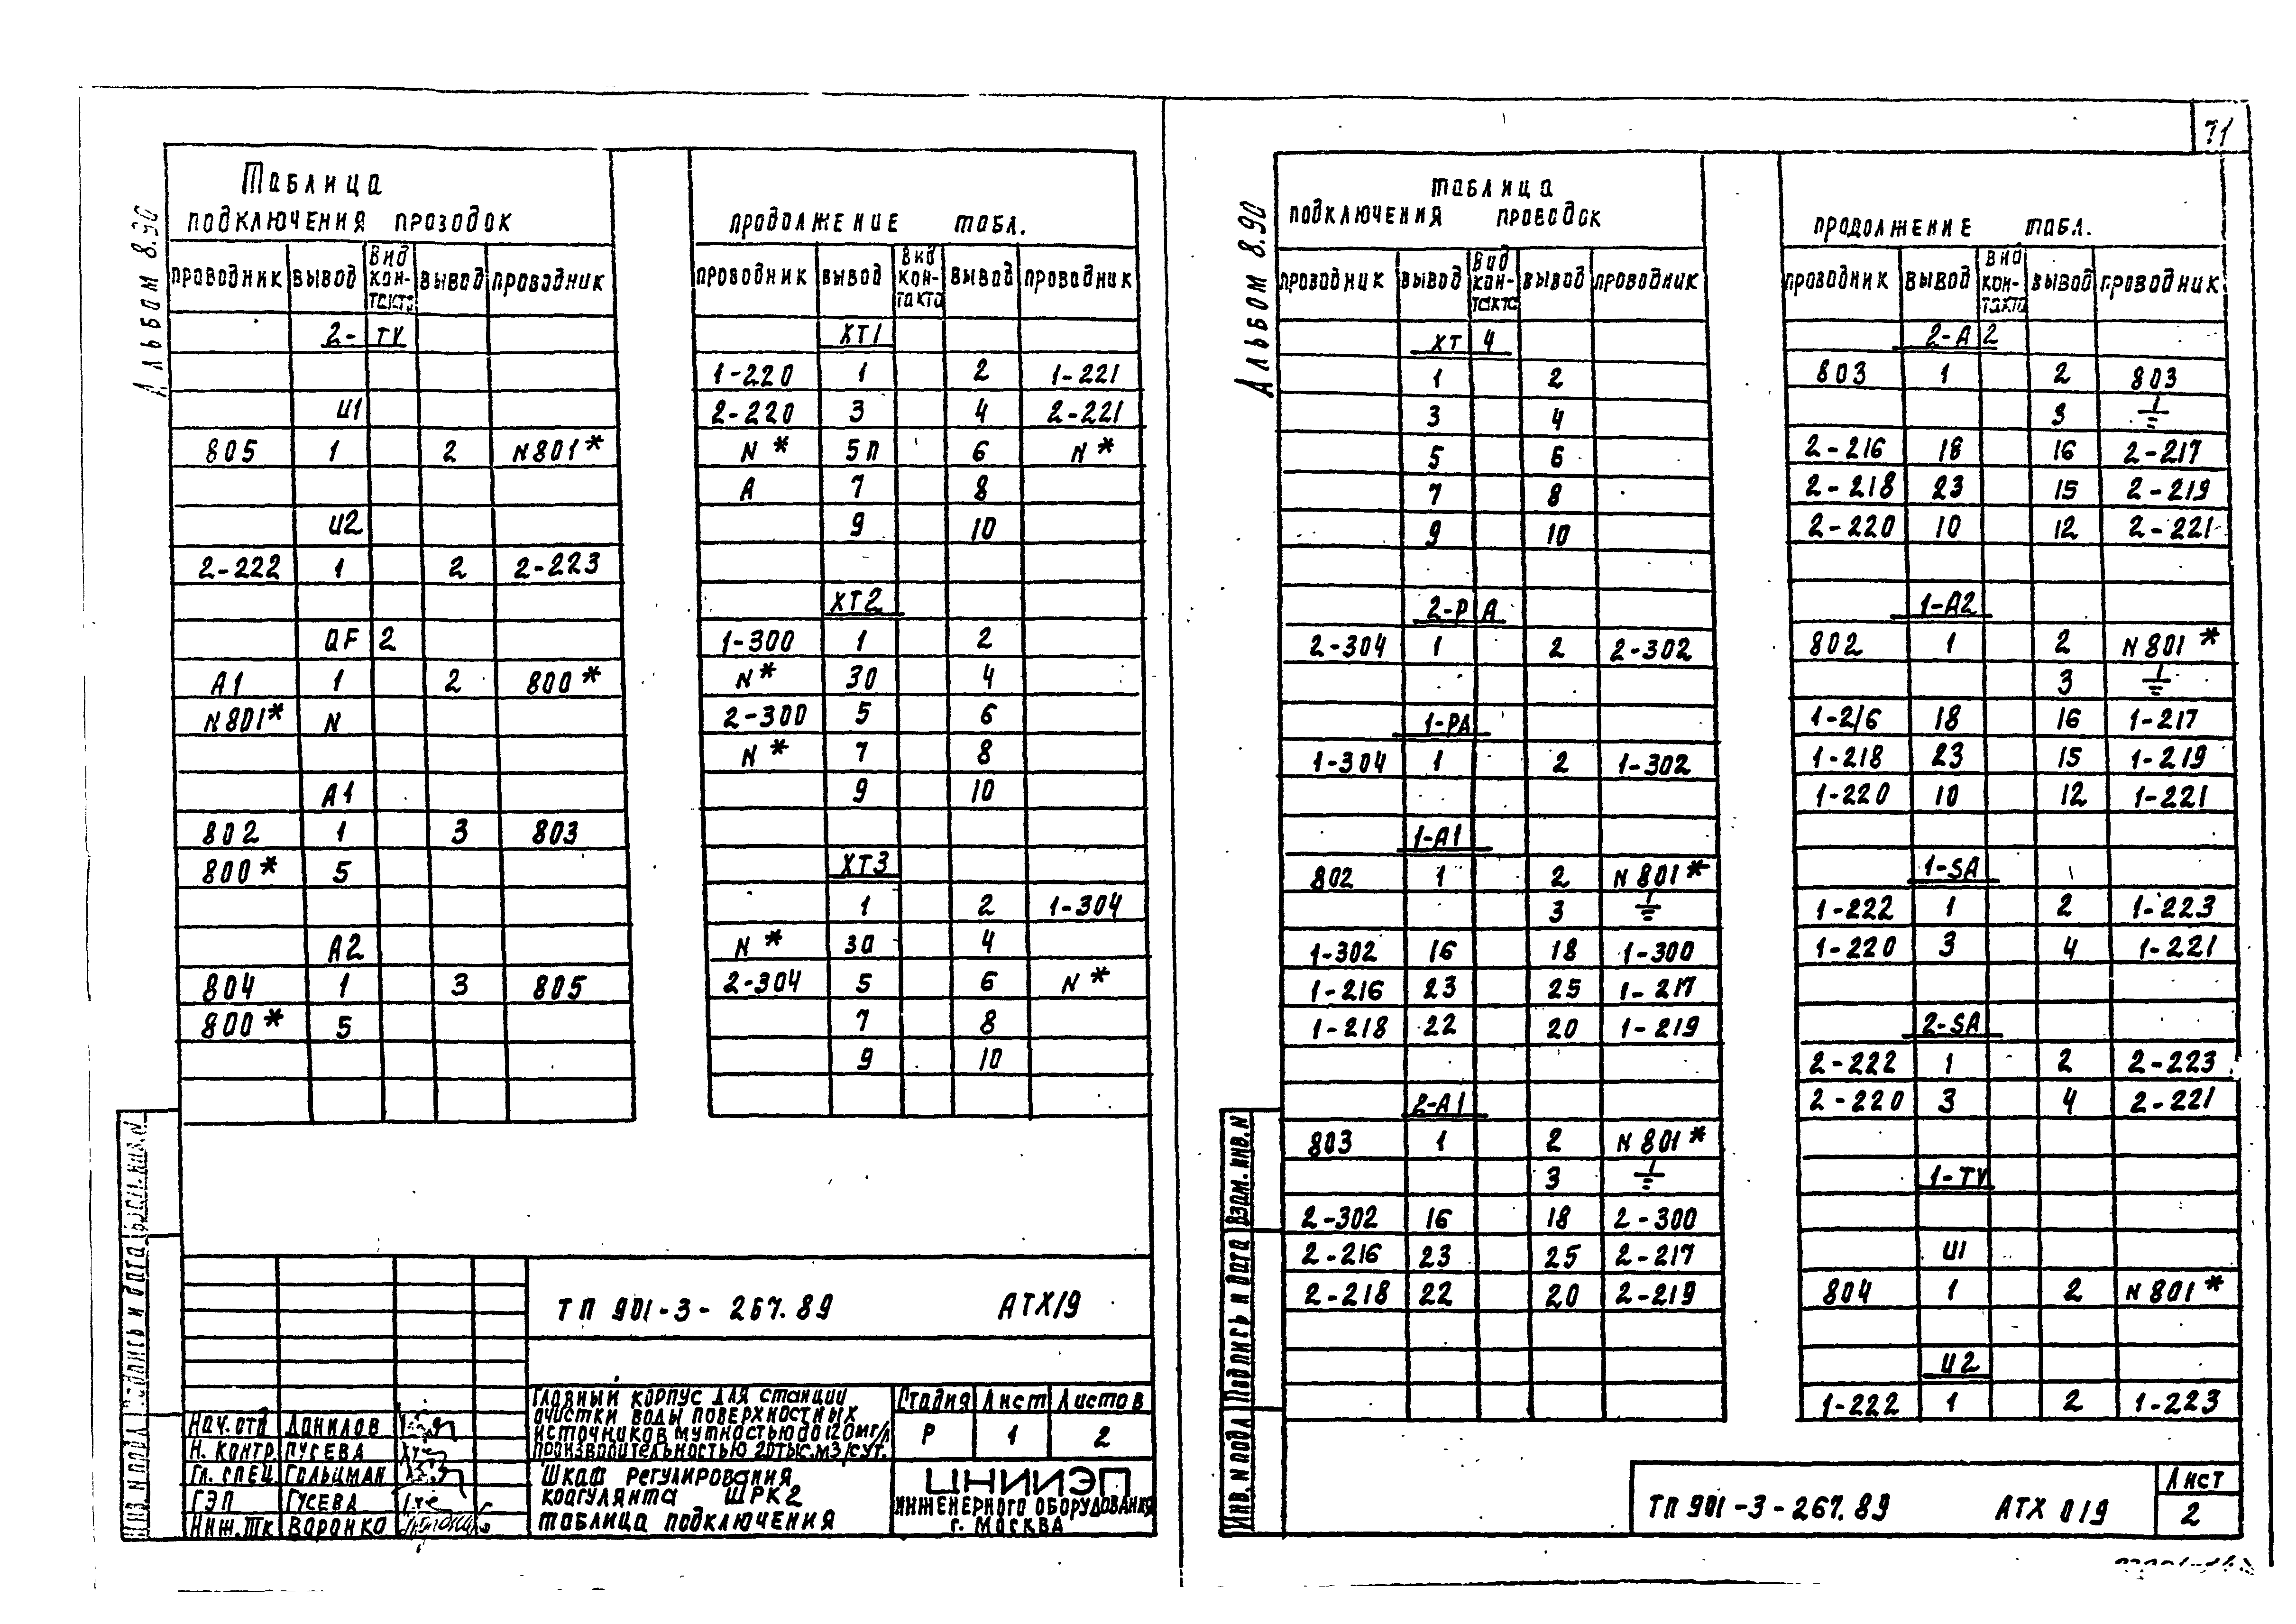 71
Альбом 8.90
Таблица
подключения проводок
проводник вывод Вид кон-такта вывод проводник
2-ТУ
U1
805 1 2 N801*
U2
2-222 1 2 2-223
QF 2
A1 1 2 800*
N801* N
A1
802 1 3 803
800* 5
A2
804 1 3 805
800* 5
продолжение табл.
проводник вывод Вид кон-такта вывод проводник
XT1
1-220 1 2 1-221
2-220 3 4 2-221
N* 5П 6 N*
A 7 8
9 10
XT2
1-300 1 2
N* 30 4
2-300 5 6
N* 7 8
9 10
XT3
1 2 1-304
N* 30 4
2-304 5 6 N*
7 8
9 10
ТП 901-3-267.89 АТХ19
Главный корпус для станции
очистки воды поверхностных
источников мутностью до 120мг/л
производительностью 20тыс.м3/сут.
Стадия Лист Листов
Р 1 2
Шкаф регулирования
коагулянта ШРК2
таблица подключения
ЦНИИЭП
инженерного оборудования
г. Москва
Нач. отд Данилов
Н. контр. Гусева
Гл. спец. Гольцман
ГЭП Гусева
Инж. Iк Воронко
Альбом 8.90
таблица
подключения проводок
проводник вывод Вид кон-такта вывод проводник
XT 4
1 2
3 4
5 6
7 8
9 10
2-PA
2-304 1 2 2-302
1-PA
1-304 1 2 1-302
1-A1
802 1 2 N801*
3 ⏚
1-302 16 18 1-300
1-216 23 25 1-217
1-218 22 20 1-219
2-A1
803 1 2 N801*
3 ⏚
2-302 16 18 2-300
2-216 23 25 2-217
2-218 22 20 2-219
продолжение табл.
проводник вывод Вид кон-такта вывод проводник
2-A2
803 1 2 803
3 ⏚
2-216 18 16 2-217
2-218 23 15 2-219
2-220 10 12 2-221
1-A2
802 1 2 N801*
3 ⏚
1-216 18 16 1-217
1-218 23 15 1-219
1-220 10 12 1-221
1-SA
1-222 1 2 1-223
1-220 3 4 1-221
2-SA
2-222 1 2 2-223
2-220 3 4 2-221
1-ТУ
U1
804 1 2 N801*
U2
1-222 1 2 1-223
Инв. N подл Подпись и дата Взам. инв. N
ТП 901-3-267.89 АТХ 019
Лист
2